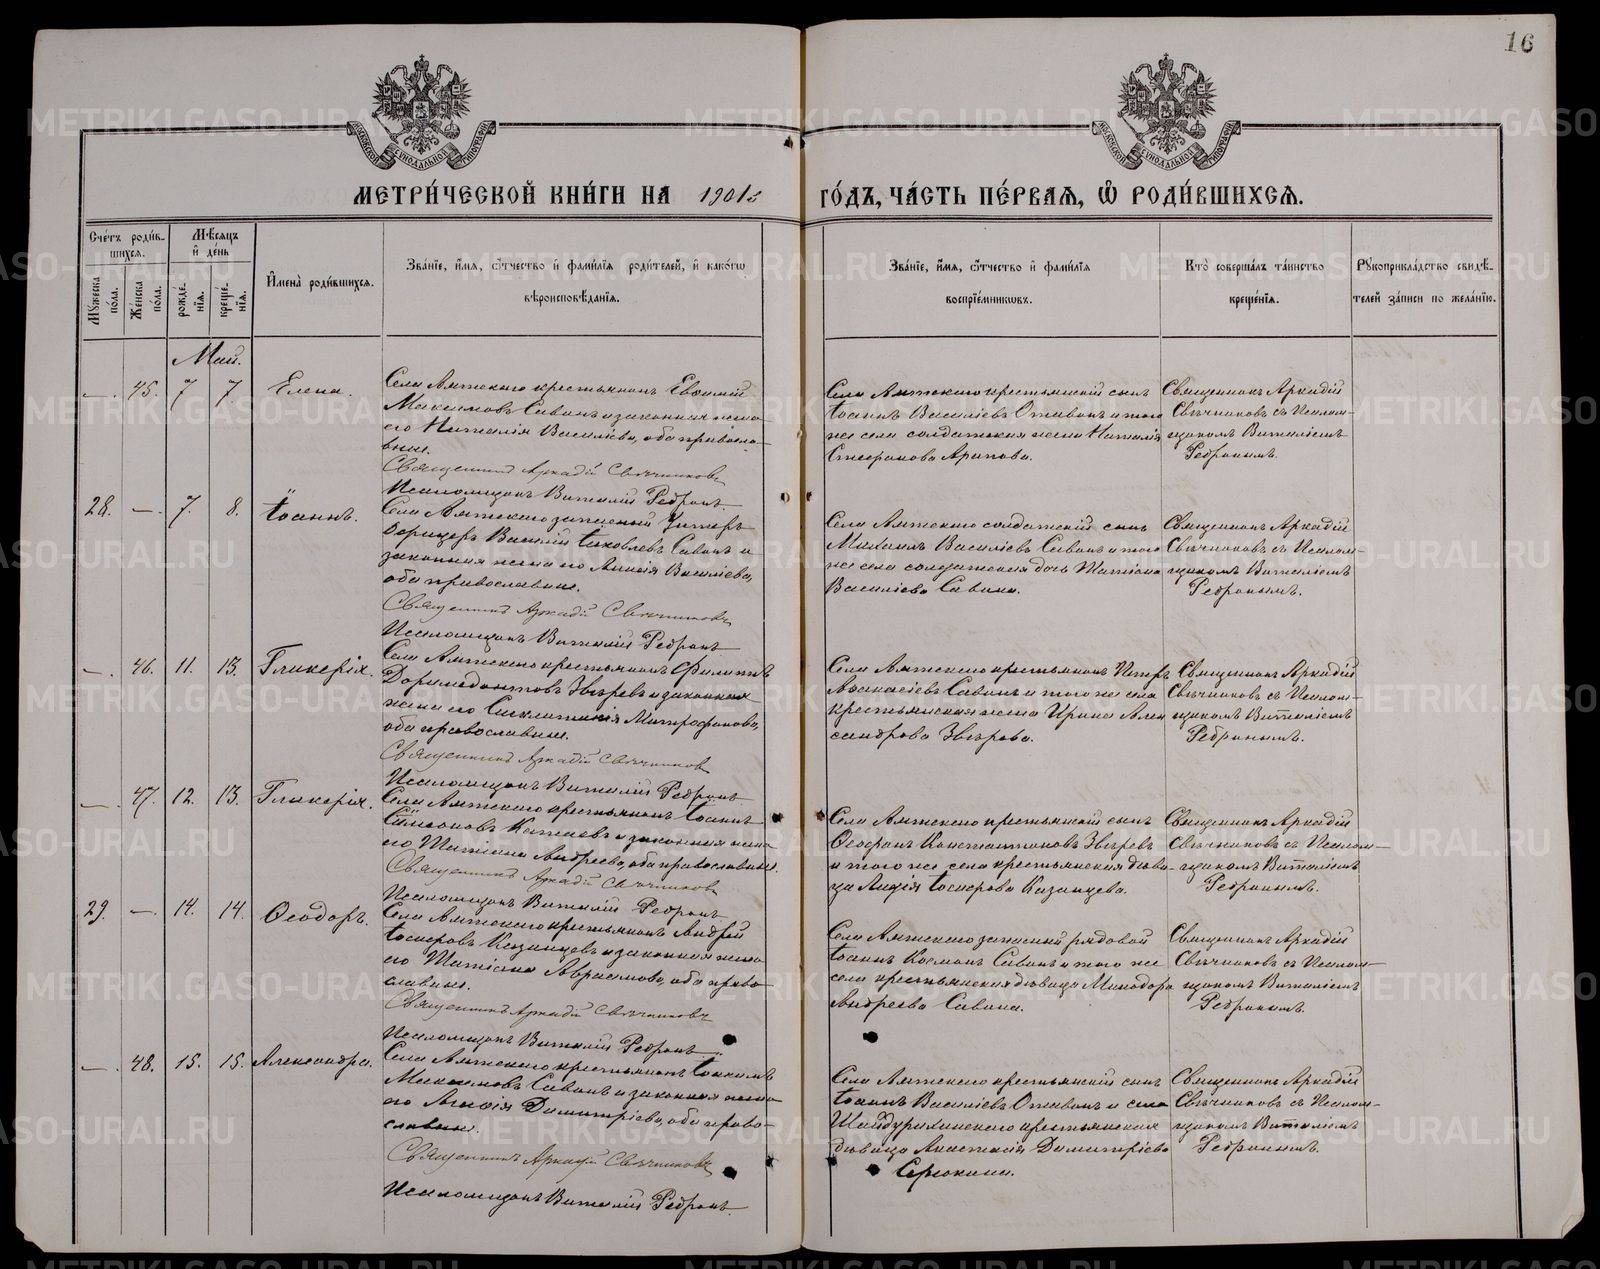 16
МОСКОВСКОЙ СУНОДАЛЬНОЙ ТИПОГРАФІИ
МОСКОВСКОЙ СУНОДАЛЬНОЙ ТИПОГРАФІИ
МЕТРИ́ЧЕСКОЙ КНИ́ГИ НА 1901 ГО́ДЪ, ЧА́СТЬ ПЕ́РВАЯ, Ѡ РОДИ́ВШИХСѦ.
Сче́тъ роди́в-
шихся.
Мѣ́сяцъ
и де́нь
Му́жеска по́ла.
Же́нска по́ла.
рожде́-
нія.
креще́-
нія.
Имена̀ роди́вшихся.
Зва́ніе, и́мя, о́тчество и фами́лія роди́телей, и како́гѡ
вѣроисповѣ́данія.
Зва́ніе, и́мя, о́тчество и фами́лія
воспріе́мниковъ.
Кто̀ соверша́лъ та́инство
креще́нія.
Рукоприкла́дство свидѣ́-
телей за́писи по жела́нію.
Май.
— 45. 7 7 Елена.
Села Аятскаго крестьянинъ Евѳимій
Максимовъ Савинъ и законная жена
его Наталія Васильева, оба православ-
ные.
Священникъ Аркадій Свѣчниковъ
Псаломщикъ Виталій Ребринъ
Села Аятскаго крестьянскій сынъ
Іоаннъ Васильевъ и того
же села солдатская жена Наталія
Стефанова
Священникъ Аркадій
Свѣчниковъ съ Псалом-
щикомъ Виталіемъ
Ребринымъ.
28. — 7. 8. Іоаннъ.
Села Аятскаго запасный Унтеръ
Офицеръ Василій Іаковлевъ Савинъ и
законная жена его Васильева,
оба православные.
Священникъ Аркадій Свѣчниковъ
Псаломщикъ Виталій Ребринъ
Села Аятскаго солдатскій сынъ
Михаилъ Васильевъ Савинъ и того
же села солдатская дочь Татіана
Васильева Савина.
Священникъ Аркадій
Свѣчниковъ съ Псалом-
щикомъ Виталіемъ
Ребринымъ.
— 46. 11. 13. Гликерія.
Села Аятскаго крестьянинъ Филиппъ
Доримедонтовъ Звѣревъ и законная
жена его Синклитикія Митрофанова,
оба православные.
Священникъ Аркадій Свѣчниковъ
Псаломщикъ Виталій Ребринъ
Села Аятскаго крестьянинъ Петръ
Аѳанасіевъ Савинъ и того же села
крестьянская жена Ирина Алек
сандрова Звѣрева.
Священникъ Аркадій
Свѣчниковъ съ Псалом-
щикомъ Виталіемъ
Ребринымъ.
— 47. 12. 13. Гликерія.
Села Аятскаго крестьянинъ Іоаннъ
Симеоновъ и законная жена
его Татіана Андреева, оба православные.
Священникъ Аркадій Свѣчниковъ
Псаломщикъ Виталій Ребринъ
Села Аятскаго крестьянскій сынъ
Ѳеофанъ Константиновъ Звѣревъ
и того же села крестьянская дѣви-
ца Лидія Іосифова Казанцева.
Священникъ Аркадій
Свѣчниковъ съ Псалом-
щикомъ Виталіемъ
Ребринымъ.
29. — 14. 14. Ѳеодоръ.
Села Аятскаго крестьянинъ Андрей
Іосифовъ Казанцевъ и законная жена
его Татіана Аврамова, оба право-
славные.
Священникъ Аркадій Свѣчниковъ
Псаломщикъ Виталій Ребринъ
Села Аятскаго запасный рядовой
Іоаннъ Косминъ Савинъ и того же
села крестьянская дѣвица Минодора
Андреева Савина.
Священникъ Аркадій
Свѣчниковъ съ Псалом-
щикомъ Виталіемъ
Ребринымъ.
— 48. 15. 15. Александра.
Села Аятскаго крестьянинъ Іоакимъ
Максимовъ Савинъ и законная жена
его Димитріева, оба право-
славные.
Священникъ Аркадій Свѣчниковъ
Псаломщикъ Виталій Ребринъ.
Села Аятскаго крестьянскій сынъ
Іоаннъ Васильевъ и села
Шайдурихинскаго крестьянская
дѣвица Анастасія Димитріева
Священникъ Аркадій
Свѣчниковъ съ Псалом-
щикомъ Виталіемъ
Ребринымъ.
METRIKI.GASO-URAL.RU